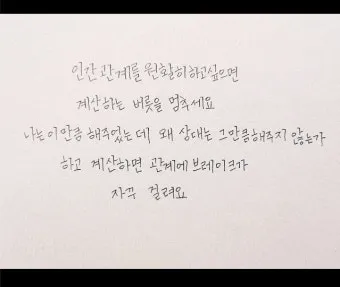 인간관계를 원활히하고싶으면
계산하는 버릇을 멈추세요
나는 이만큼 해주었는데, 왜 상대는 그만큼해주지 않는가
하고 계산하면 관계에 브레이크가
자꾸 걸려요